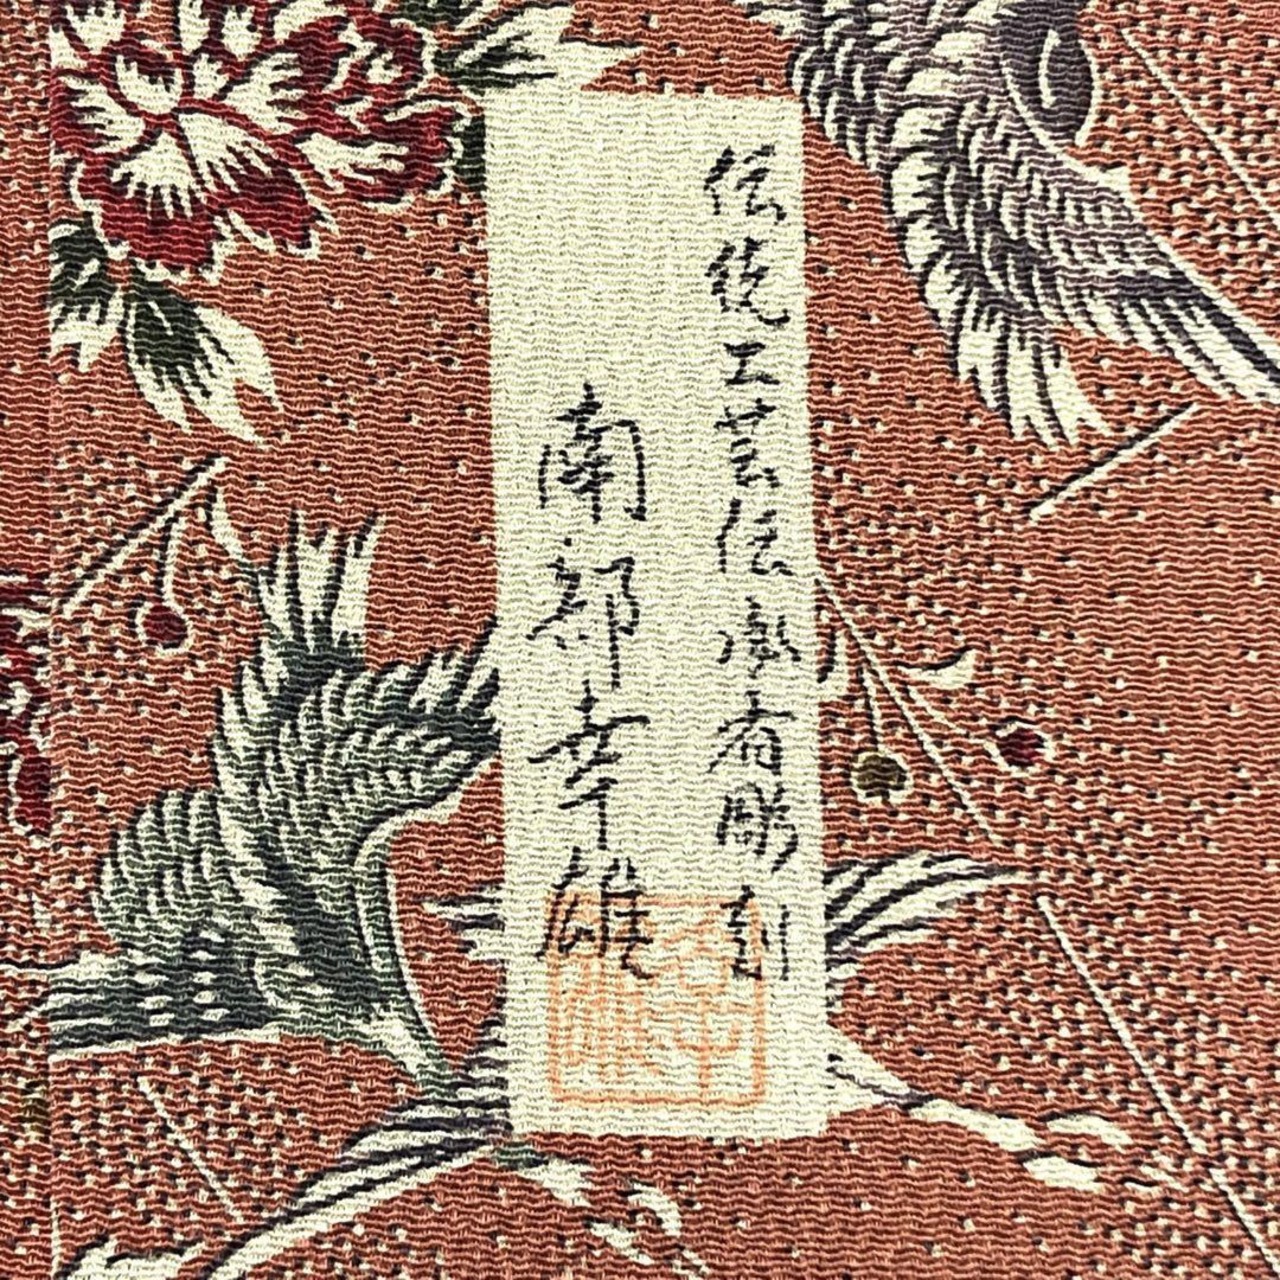 伝統工芸伝承者彫刻
南部幸雄
幸雄